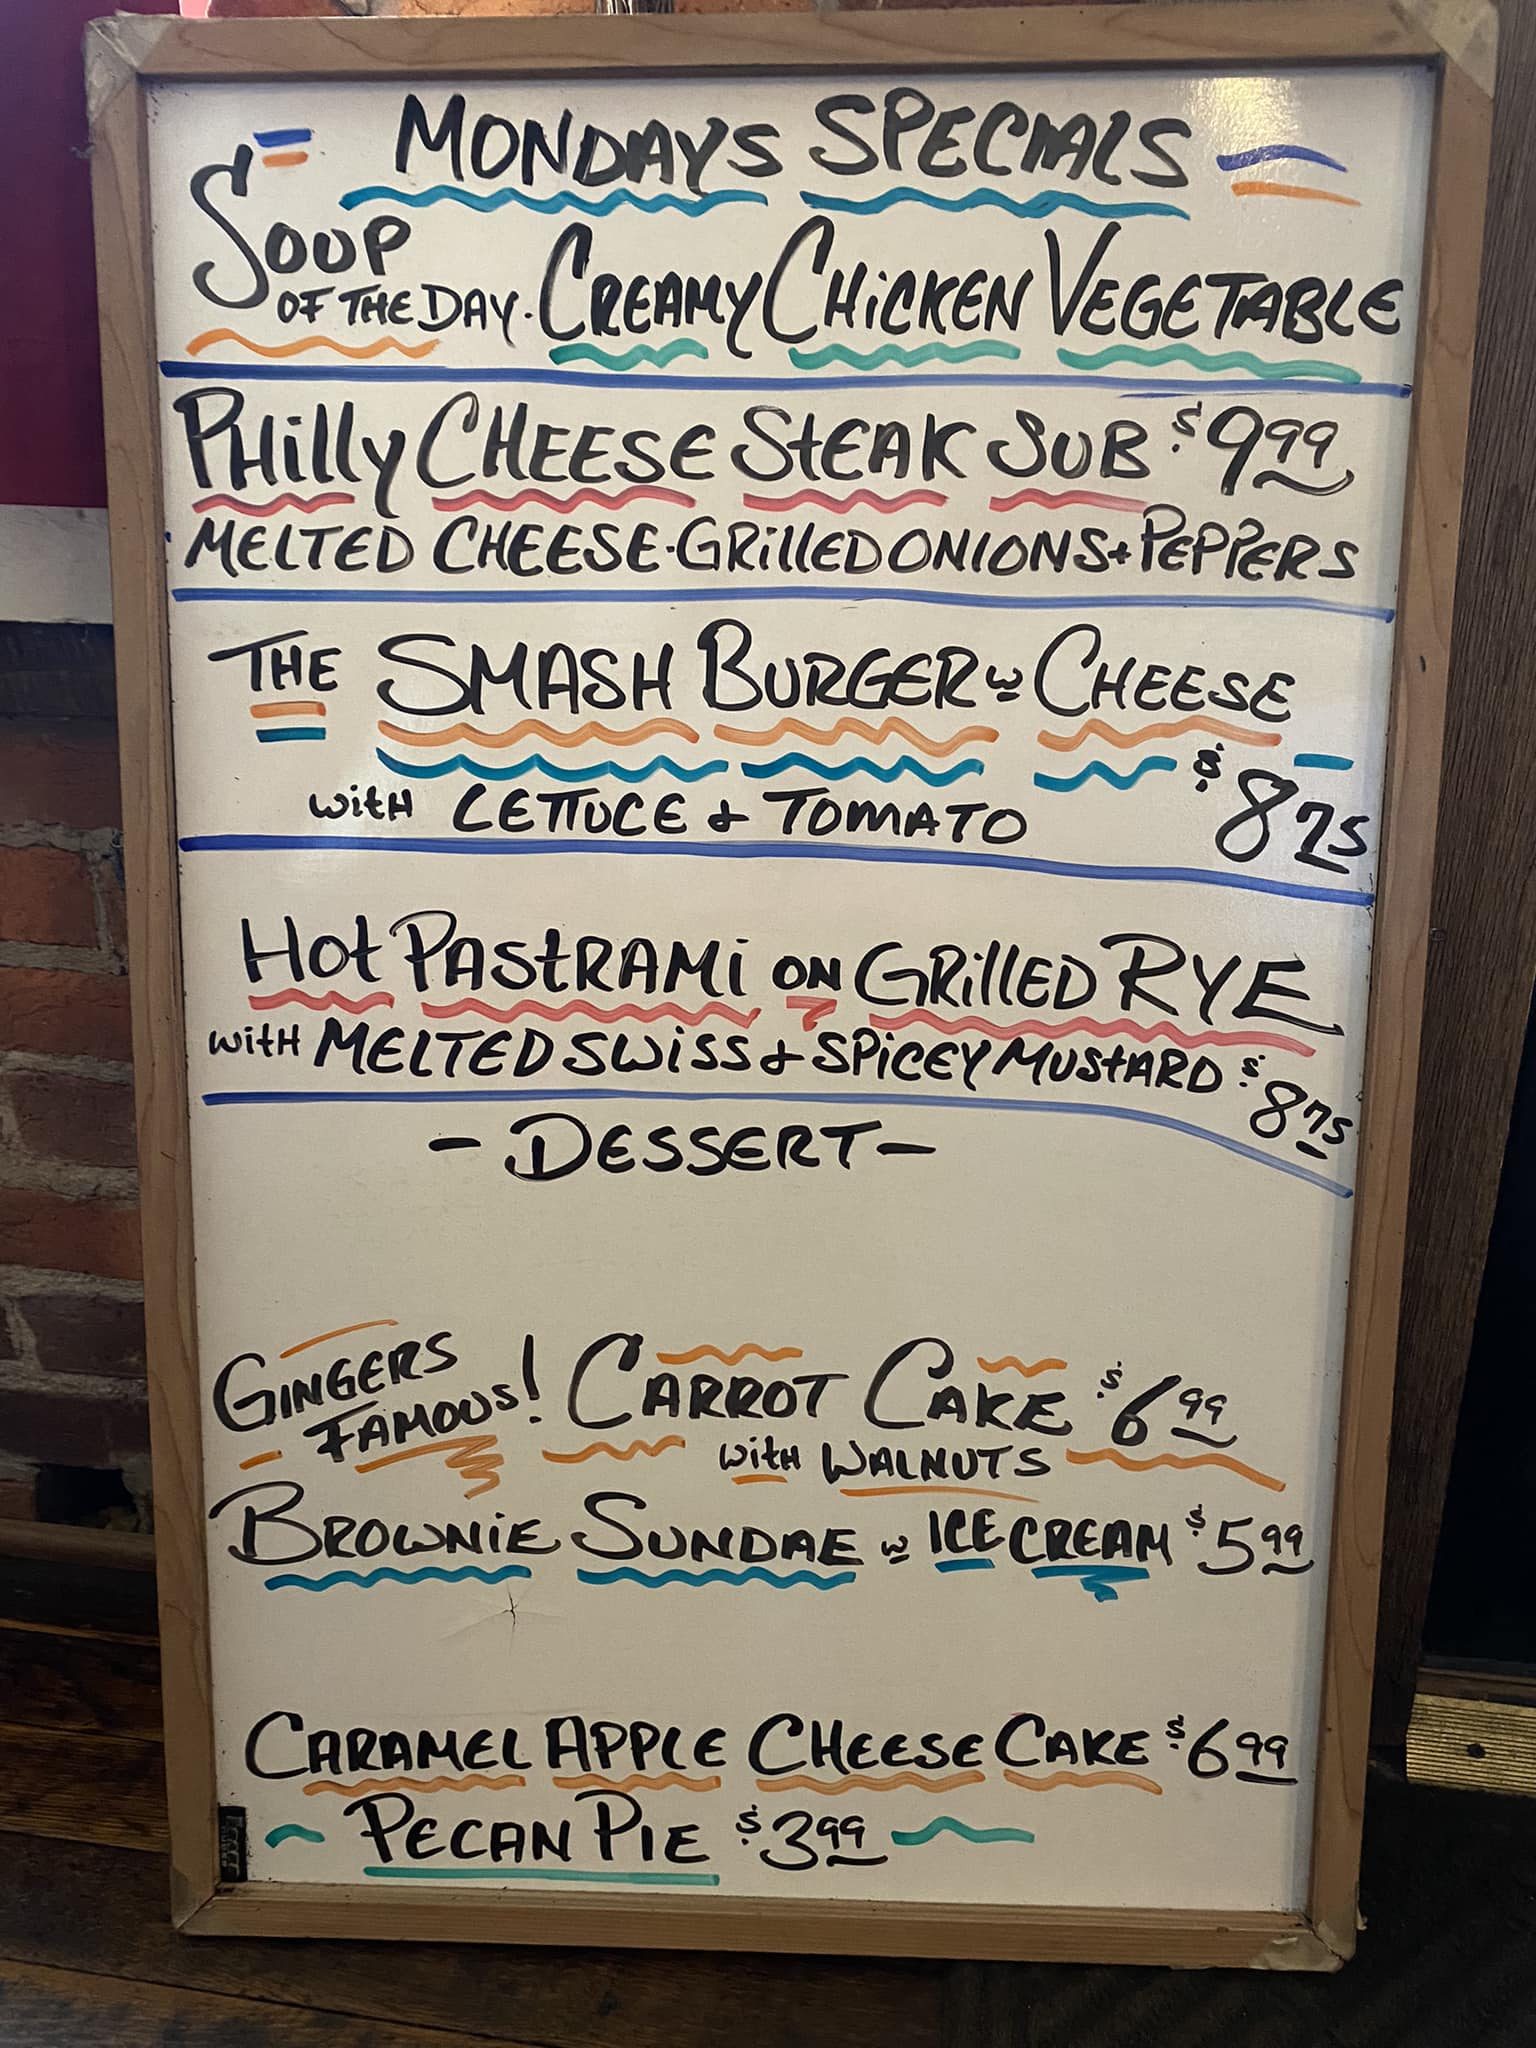 MONDAYS SPECIALS
SOUP OF THE DAY. CREAMY CHICKEN VEGETABLE
PHilly CHEESE StEAK SUB $9.99
MELTED CHEESE · GRillED ONIONS + PEPPERS
THE SMASH BURGER w CHEESE
with LETTUCE & TOMATO $8.75
Hot PAStRAMi ON GRillED RYE
with MELTED SWiSS & SPiCEY MUStARD $8.75
- DESSERT -
GINGERS FAMOUS! CARROT CAKE $6.99
with WALNUTS
BROWNiE SUNDAE w ICE CREAM $5.99
CARAMEL APPLE CHEESE CAKE $6.99
PECAN PIE $3.99